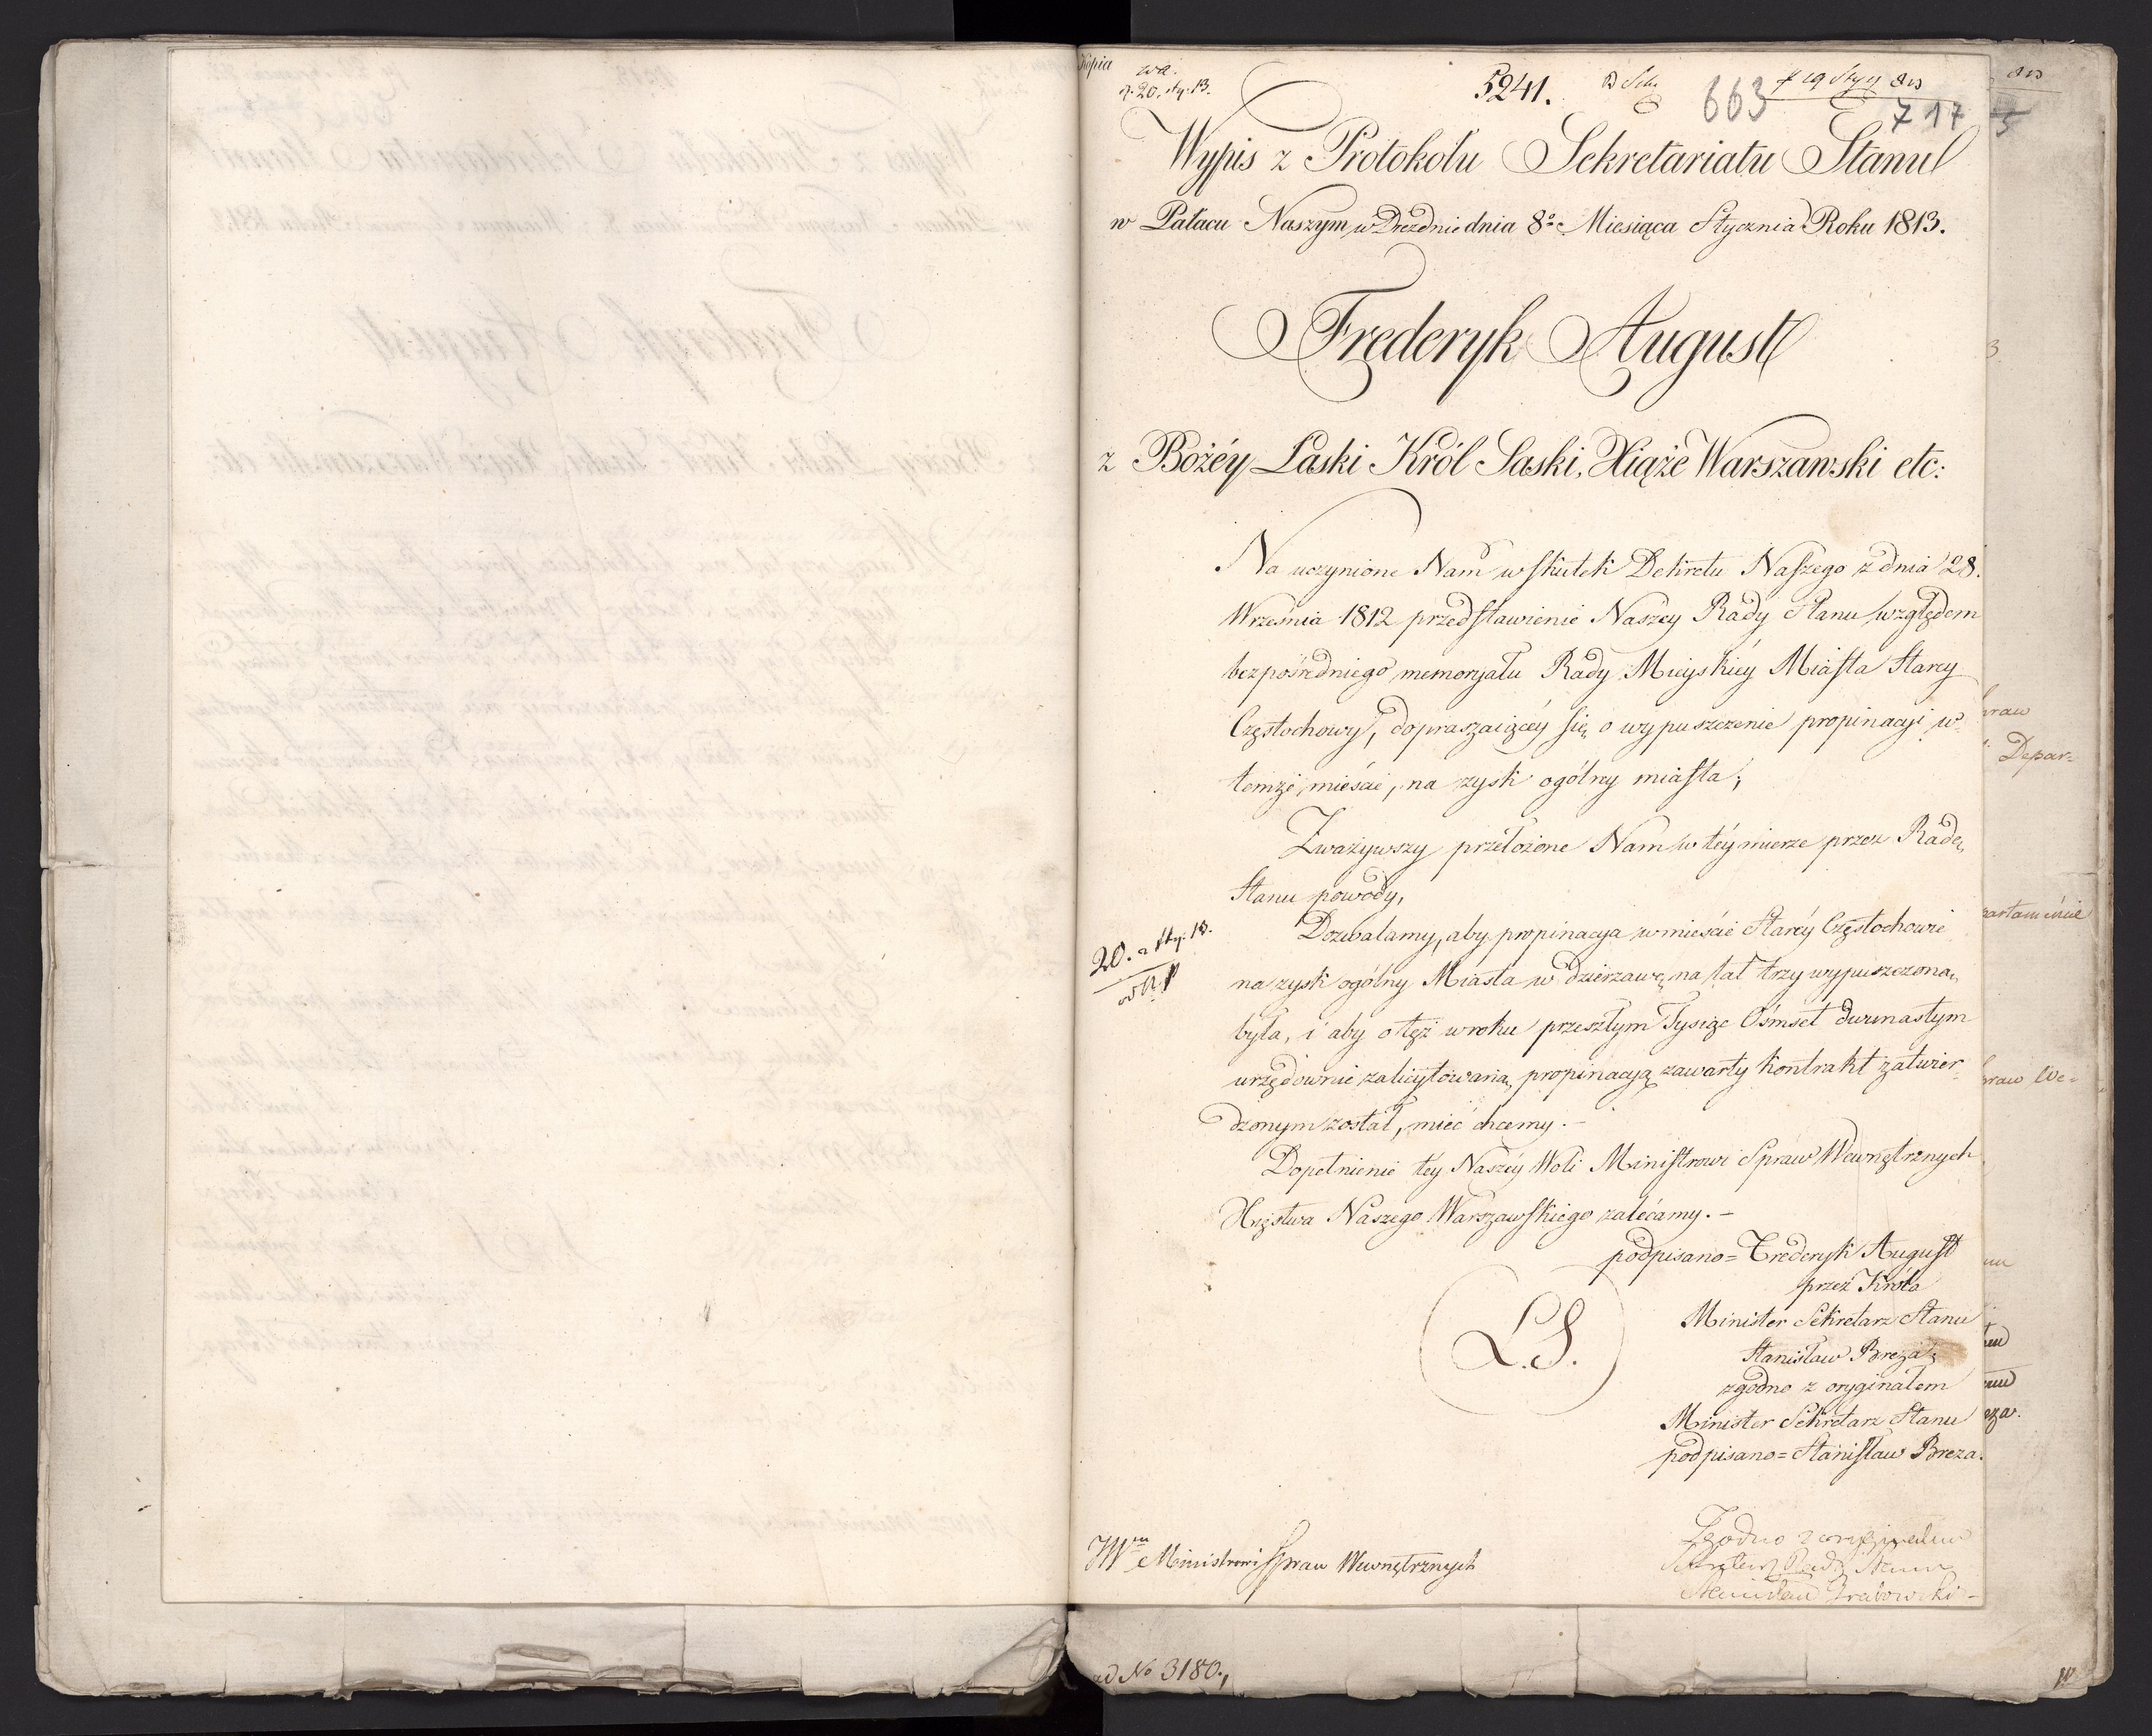 Kopia
5241.
663
717
Wypis z Protokołu Sekretariatu Stanu
w Pałacu Naszym w Dreznie dnia 8º Miesiąca Stycznia Roku 1813.
Frederyk August
z Bożéy Łaski Król Saski, Xiąże Warszawski etc:
Na uczynione Nam w skutek Dekretu Naszego z dnia 28.
Września 1812 przedstawienie Naszey Rady Stanu względem
bezpośredniego memoryału Rady Mieyskiéy Miasta Starey
Częstochowy, dopraszaiącéy się o wypuszczenie propinacyi w
temże mieście, na zysk ogólny miasta;
Zważywszy przełożone Nam w téy mierze przez Radę
Stanu powody,
Dozwalamy, aby propinacya w mieście Staréy Częstochowie
na zysk ogólny Miasta w dzierzawę na lat trzy wypuszczoną
była, i aby o też w roku przeszłym Tysiąc Ośmset dwunastym
urzędownie zalicytowaną propinacyą zawarty kontrakt zatwier
dzonym został, mieć chcemy.–
20. a sty: 13.
Dopełnienie téy Naszéy Woli Ministrowi Spraw Wewnętrznych
Xięstwa Naszego Warszawskiego zalécamy.–
podpisano= Frederyk August
przez Króla
Minister Sekretarz Stanu
Stanisław Breza
L.S.
zgodno z oryginałem
Minister Sekretarz Stanu
podpisano= Stanisław Breza.
JWmu Ministrowi Spraw Wewnętrznych
Zgodno z oryginałem
Sekretarz Rady Stanu
Stanisław Grabowski–
ad No 3180.
Depar=